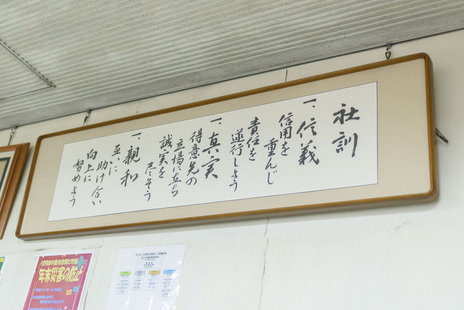 社訓
一、信義
信用を重んじ
責任を
遂行しよう
一、真実
得意先の
立場に立ち
誠実を
尽そう
一、親和
互いに
助け合い
向上に
努めよう
年末災害の防止